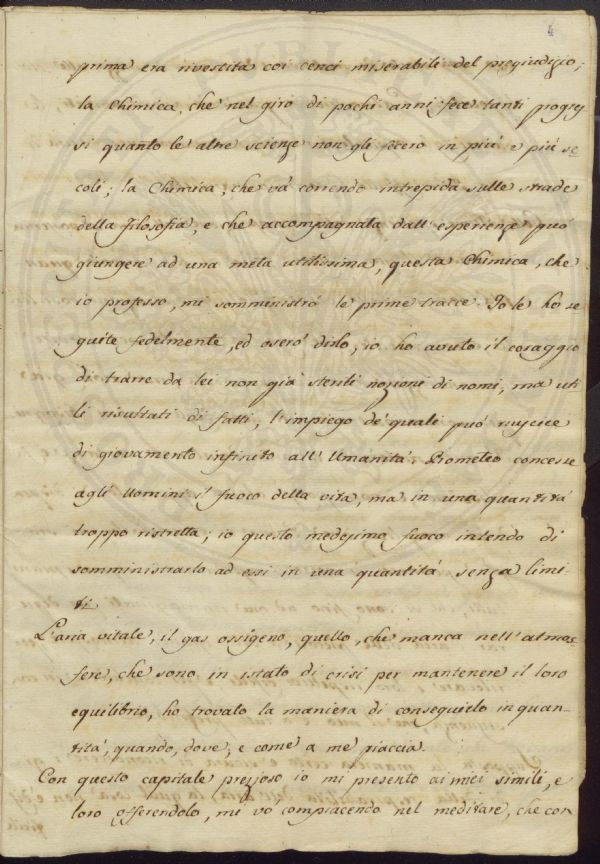 4
prima era rivestita coi cenci miserabili del pregiudizio;
la Chimica, che nel giro di pochi anni fece tanti progres
si quanto le altre scienze non gli fecero in più e più se
coli; la Chimica, che và correndo intrepida sulle strade
della Filosofia, e che accompagnata dall' esperienze può
giungere ad una meta utilissima, questa Chimica, che
io professo, mi somministrò le prime tracce. Io le ho se
guite fedelmente, ed oserò dirlo, io ho avuto il coraggio
di trarre da lei non già sterili nozioni di nomi, ma uti
li risultati di fatti, l'impiego de' quali può riuscire
di giovamento infinito all' Umanità. Prometeo concesse
agli Uomini il fuoco della vita, ma in una quantità
troppo ristretta; io questo medesimo fuoco intendo di
somministrarlo ad essi in una quantità senza limi
ti.
L'aria vitale, il gas ossigeno, quello, che manca nell' atmos
fere, che sono in istato di crisi per mantenere il loro
equilibrio, ho trovato la maniera di conseguirlo in quan-
tità, quando, dove, e come a me piaccia.
Con questo capitale prezioso io mi presento ai miei simili, e
loro offerendolo, mi vò compiacendo nel meditare, che con